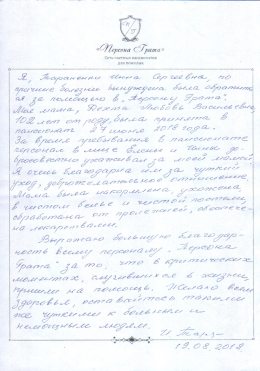 «Персона Грата»
Сеть частных пансионатов
для пожилых
Я, Тараненко Инна Сергеевна, по
причине болезни вынуждена была обратить-
ся за помощью в „Персону Грата".
Моя мама, Любовь Васильевна
102 лет от роду, была принята в
пансионат 27 июня 2018 года.
За время пребывания в пансионате
персонал в лице и Тани до-
бросовестно ухаживал за моей мамой.
Я очень благодарна им за чуткий
уход, доброжелательное отношение.
Мама была накормлена, ухожена,
в чистом белье и чистой постели,
обработана от пролежней, обеспече-
на лекарствами.
Выражаю большую благодар-
ность всему персоналу „Персона
Грата" за то, что в критических
моментах, случившихся в жизни,
пришли на помощь. Желаю всем
здоровья, оставайтесь такими
же чуткими к больным и
немощным людям.
19.08.2018